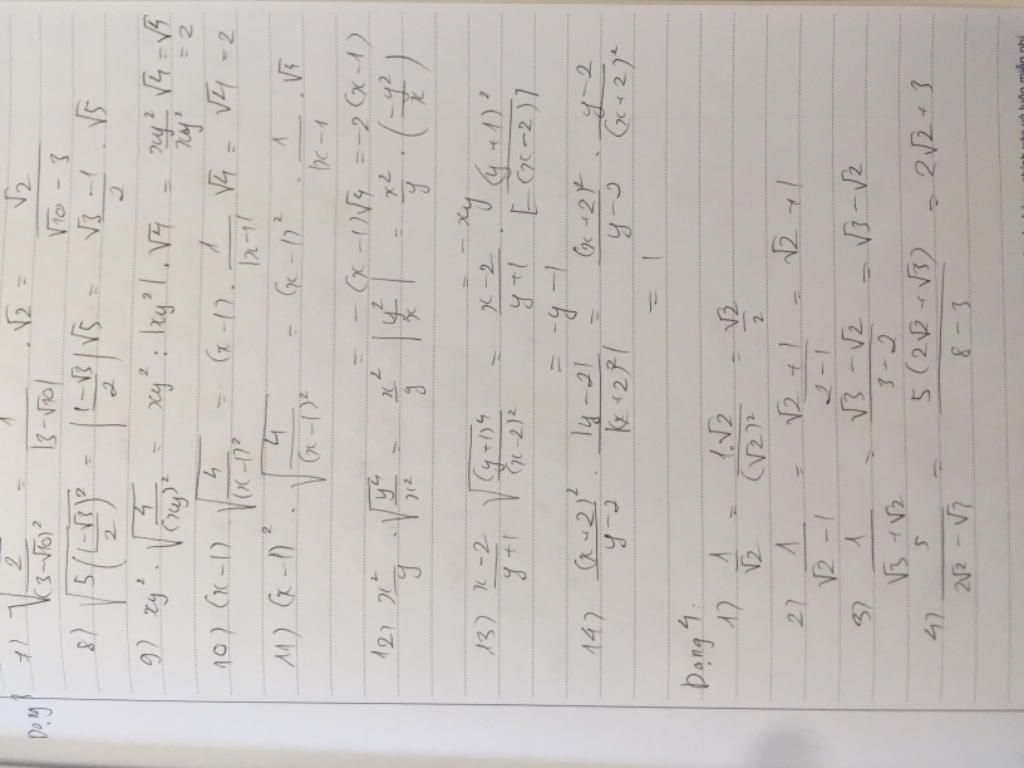 Dạng 3
7) √(2/(3-√10)²) = 1/|3-√10| . √2 = √2/(√10 - 3)
8) √(5((1-√3)/2)²) = |(1-√3)/2|√5 = (√3 - 1)/2 . √5
9) xy² . √(4/(xy²)²) = xy² : |xy²| . √4 = xy²/xy² √4 = √4
= 2
10) (x-1) √(4/(x-1)²) = (x-1) . 1/|x-1| √4 = √4 = 2
11) (x-1)² . √(4/(x-1)²) = (x-1)² . 1/|x-1 . √4
= -(x-1)√4 = -2(x-1)
12) x²/y . √(y⁴/x²) = x²/y |y²/x| = x²/y . (-y²/x)
= -xy
13) (x-2)/(y+1) √((y+1)⁴/(x-2)²) = (x-2)/(y+1) . (y+1)²/[-(x-2)]
= -y-1
14) (x+2)²/(y-2) . |y-2|/|(x+2)²| = (x+2)²/(y-2) . (y-2)/(x+2)²
= 1
Dạng 4:
1) 1/√2 = 1.√2/(√2)² = √2/2
2) 1/(√2 - 1) = (√2 + 1)/(2-1) = √2 + 1
3) 1/(√3 + √2) = (√3 - √2)/(3-2) = √3 - √2
4) 5/(2√2 - √3) = 5(2√2 + √3)/(8 - 3) = 2√2 + 3